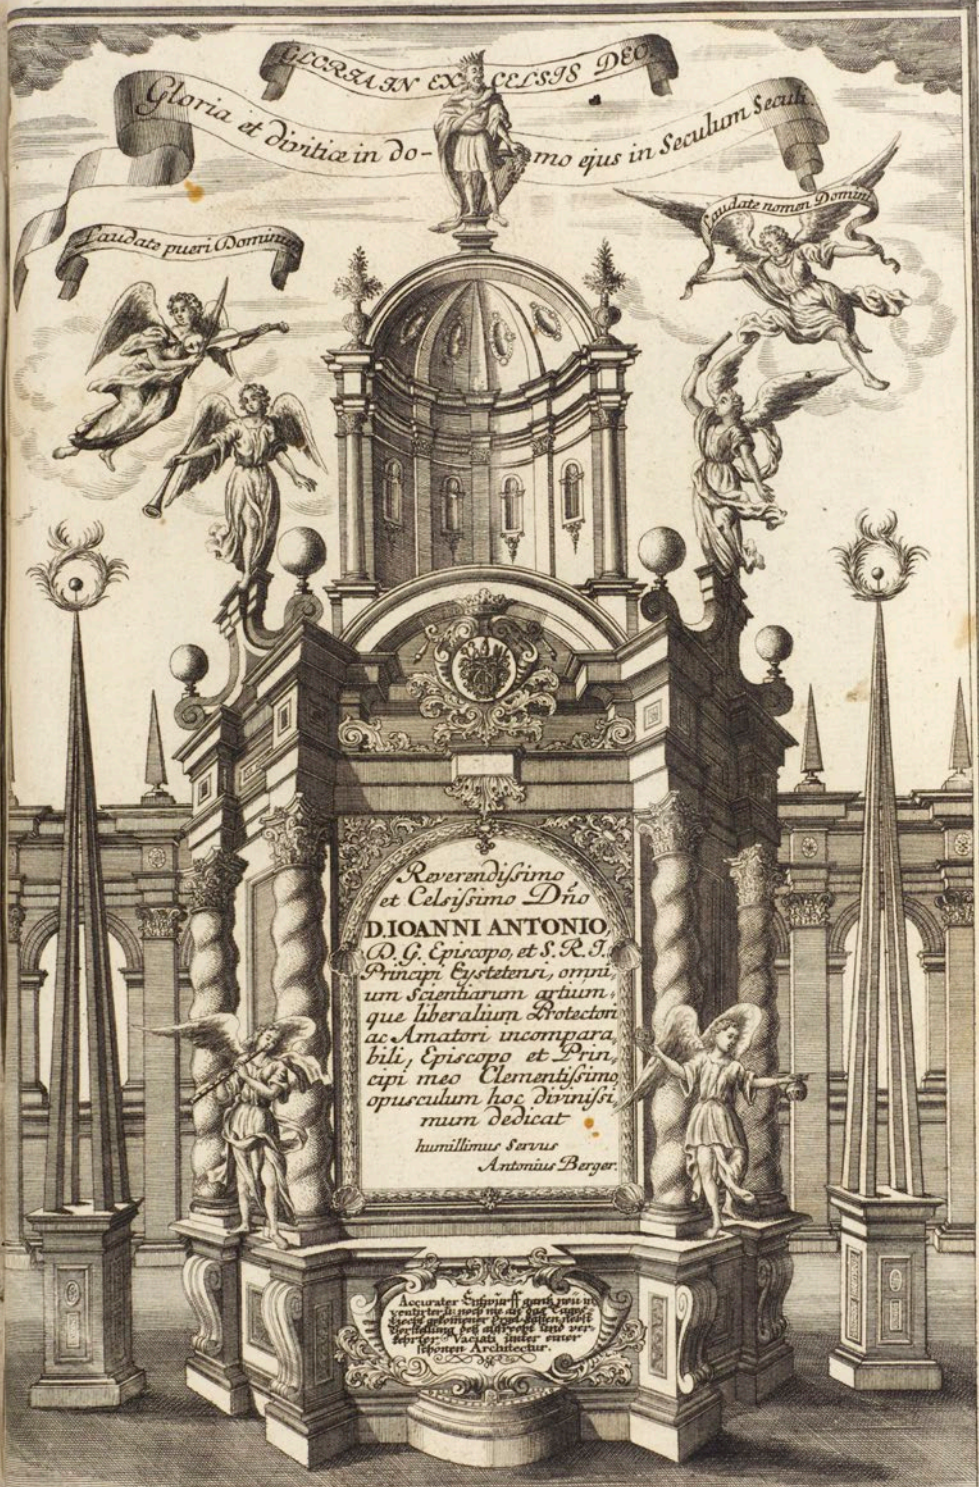 GLORIA IN EXCELSIS DEO.
Gloria et divitiæ in do-mo ejus in Seculum Seculi.
Laudate pueri Dominum
Laudate nomen Domini
Reverendiſsimo
et Celsiſsimo Dño
D. IOANNI ANTONIO,
D. G. Episcopo, et S. R. I.
Principi Eystetensi, omni,
um Scientiarum artium,
que liberalium Protectori
ac Amatori incompara,
bili, Episcopo et Prin,
cipi meo Clementiſsimo,
opusculum hoc diviniſsi,
mum dedicat
humillimus Servus
Antonius Berger.
Accurater Entwurff gantz neu in
ventirter u: noch nie an das Tages
Liecht gekommener Orgel-Kästen nebst
Vorstellung deß aufrecht und ver-
kehrter Vaciati unter einer
schönen Architectur.